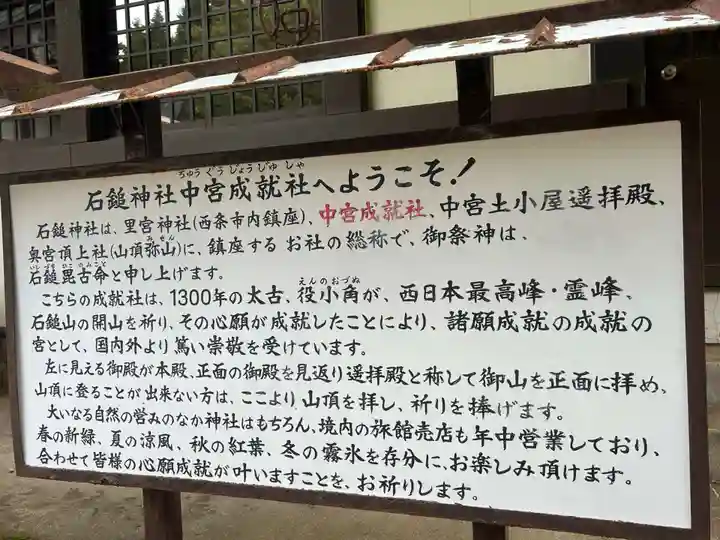 ちゅうぐうじょうじゅしゃ
石鎚神社中宮成就社へようこそ!
石鎚神社は、里宮神社(西条市内鎮座)、中宮成就社、中宮土小屋遥拝殿、
みせん
奥宮頂上社(山頂弥山)に、鎮座する お社の総称で、御祭神は、
いしづちひこのみこと
石鎚毘古命と申し上げます。
えんのおづぬ
こちらの成就社は、1300年の太古、役小角が、西日本最高峰・霊峰、
石鎚山の開山を祈り、その心願が成就したことにより、諸願成就の成就の
宮として、国内外より篤い崇敬を受けています。
左に見える御殿が本殿、正面の御殿を見返り遥拝殿と称して御山を正面に拝め、
山頂に登ることが出来ない方は、ここより山頂を拝し、祈りを捧げます。
大いなる自然の営みのなか神社はもちろん、境内の旅館売店も年中営業しており、
春の新緑、夏の涼風、秋の紅葉、冬の霧氷を存分に、お楽しみ頂けます。
合わせて皆様の心願成就が叶いますことを、お祈りします。